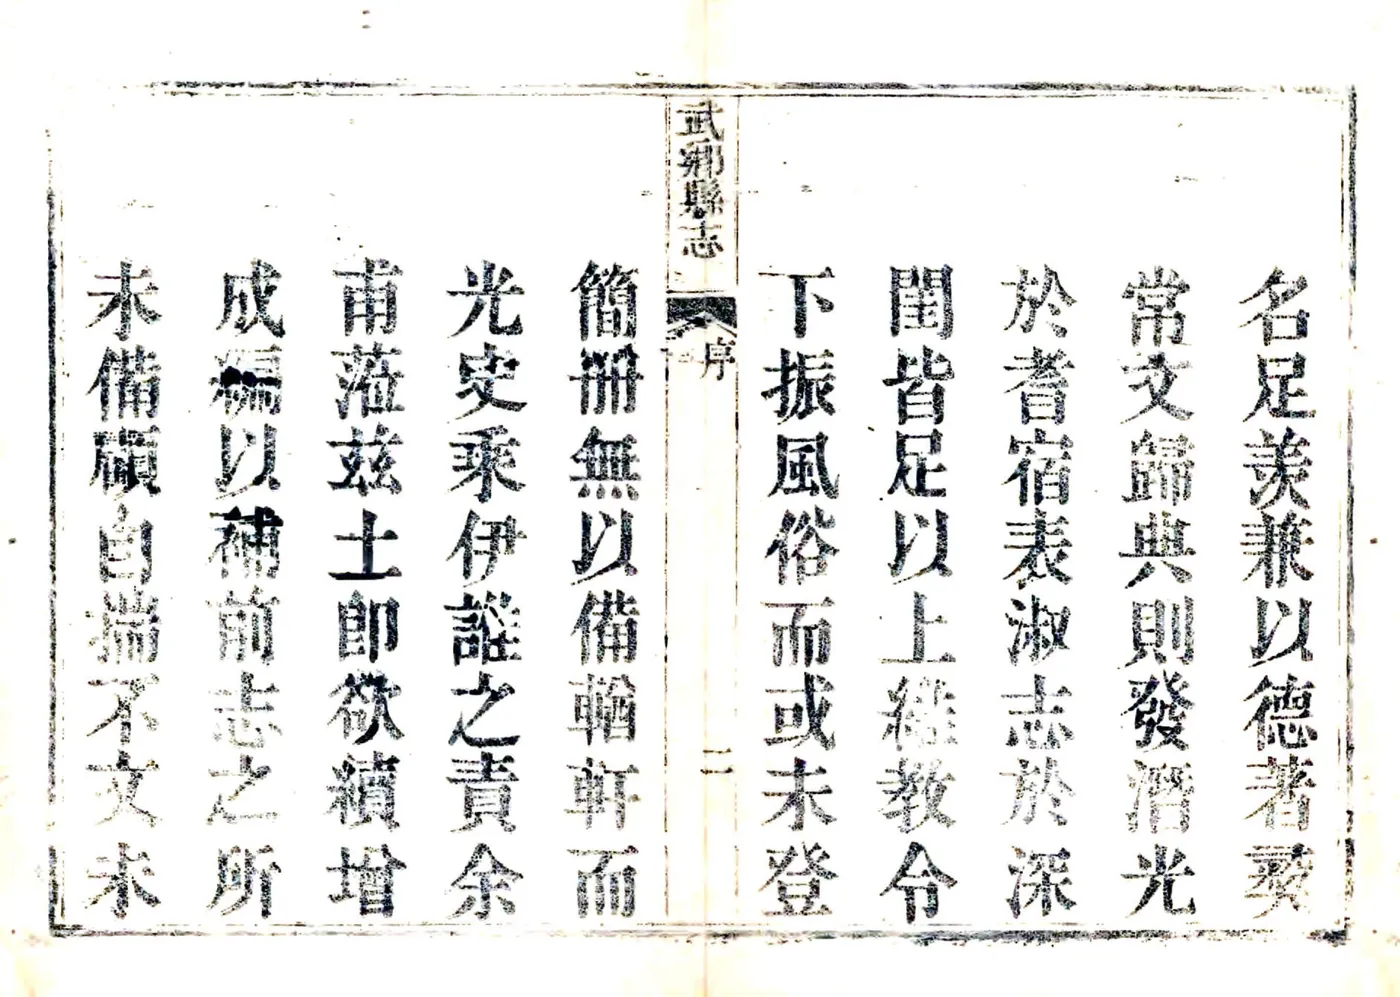 名足羨兼以德著彛
常文歸典則發潛光
於耆宿表淑志於深
閨皆足以上維教令
下振風俗而或未登
武鄉縣志
序
二
簡冊無以備輶軒而
光史乘伊誰之責余
甫蒞茲土即欲續增
成編以補前志之所
未備顧自揣不文未